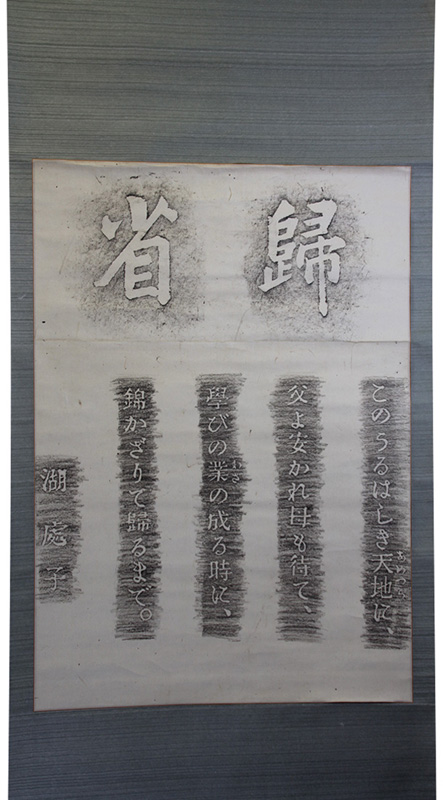 歸省
このうるはしき天地に、
あめつち
父よ安かれ母も待て、
學びの業の成る時に、
わざ
錦かざりて歸るまで。
湖處子